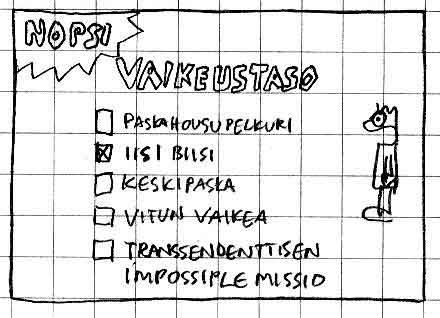 NOPSI
VAIKEUSTASO
PASKAHOUSUPELKURI
IISI BIISI
KESKIPASKA
VITUN VAIKEA
TRANSSENDENTTISEN
IMPOSSIPLE MISSIO